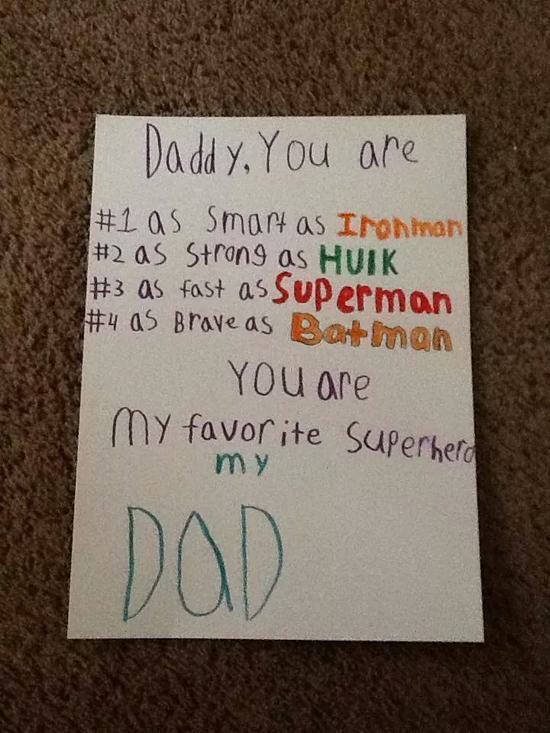 Daddy, You are
#1 as Smart as Ironman
#2 as Strong as HUIK
#3 as fast as Superman
#4 as Brave as Batman
You are
My favorite Superhero
my
DAD